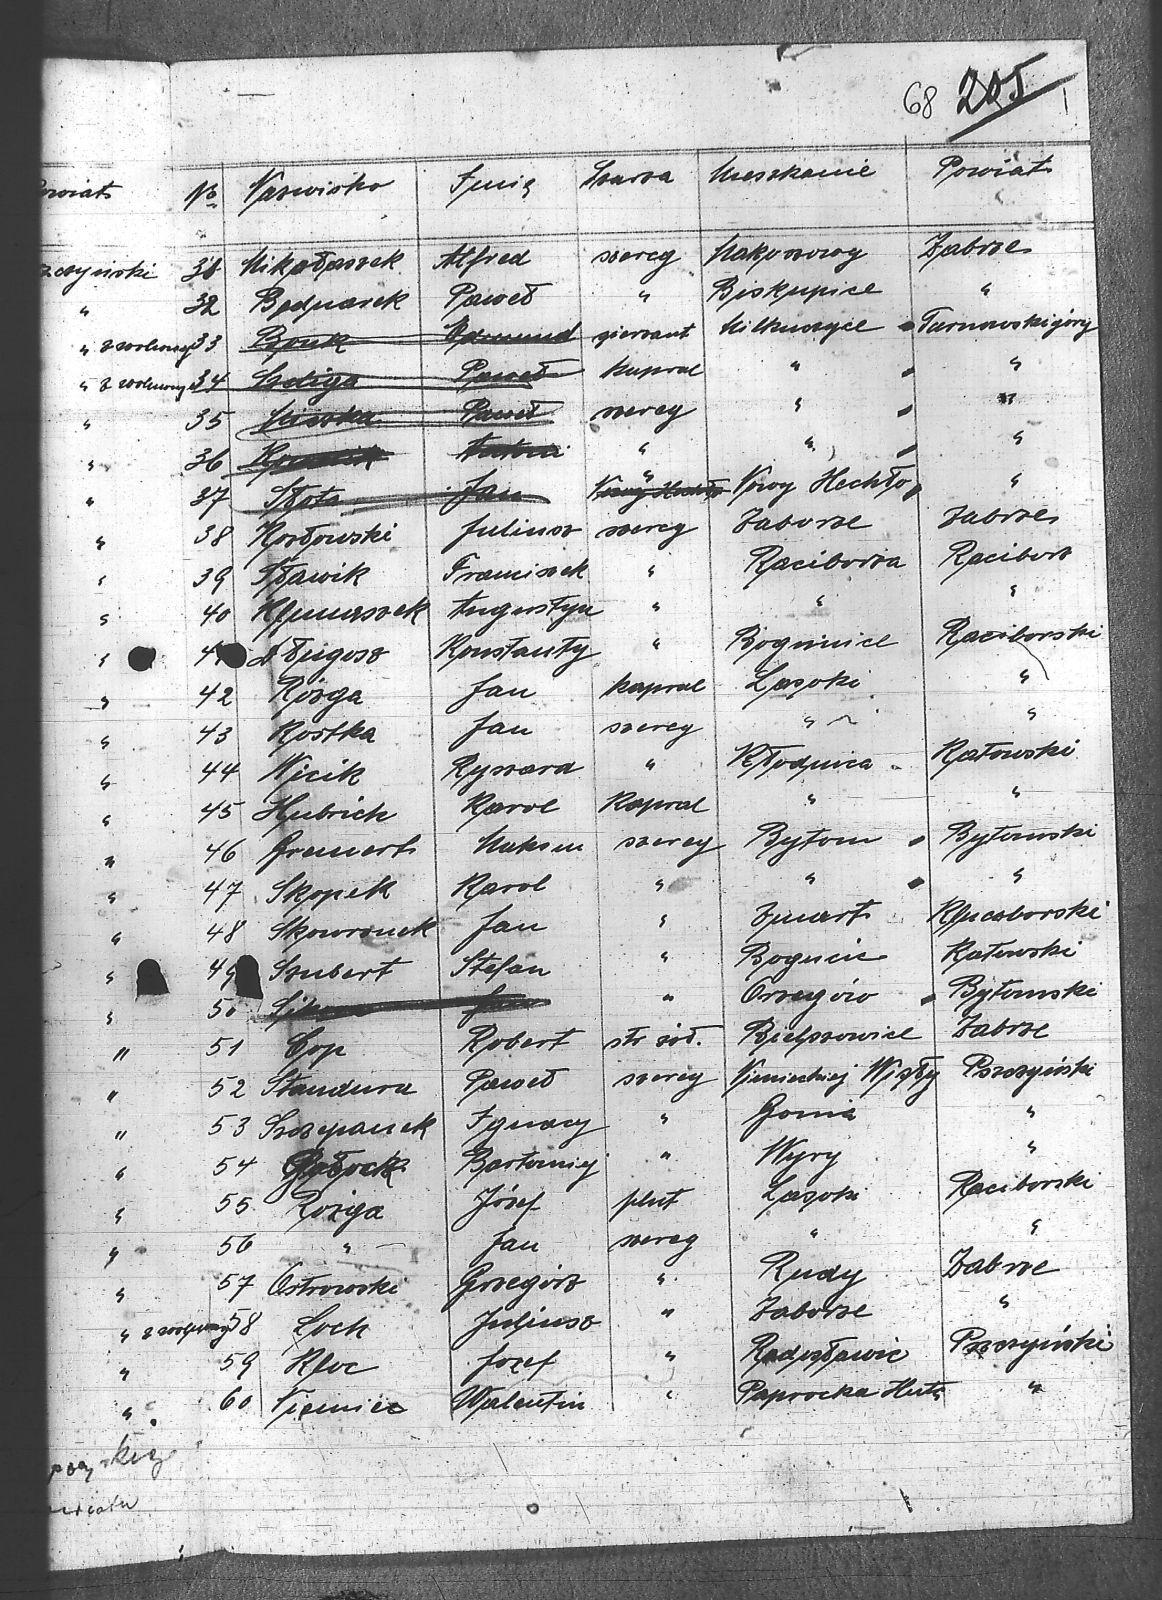 68 205
Powiat № Nazwisko Imię Szarża Mieszkanie Powiat
31 Mikołaszek Alfred szereg Makoszowy Zabrze
" 32 Bednarek Paweł " Biskupice "
" zwolniony 33 Bonk Edmund sierżant Mikluszyce Tarnowskigóry
" zwolniony 34 Szeliga Paweł kapral " "
" 35 Paweł szereg " "
" 36 Antoni " " "
" 37 Słota Jan " Nowy Hechło "
" 38 Kozłowski Juliusz szereg Zaborze Zabrze
" 39 Sławik Franciszek " Raciborza Racibórz
" 40 Klymaszek Augustyn " " "
" 41 Długosz Konstanty " Bogunice Raciborski
" 42 Rózga Jan kapral Lasoki "
" 43 Kostka Jan szereg " "
" 44 Wicik Ryszard " Kłodnica Katowski
" 45 Hubrich Karol Kapral " "
" 46 Grenert Maksim szereg Bytom Bytomski
" 47 Skopek Karol " " "
" 48 Skowronek Jan " Zmart Kluczborski
" 49 Szubert Stefan " Bogucic Katowski
" 50 Jan " Orzegów Bytomski
" 51 Cop Robert str żoł. Bielszowice Zabrze
" 52 Standura Paweł szereg Niemieckiej Wisły Pszczyński
" 53 Szczepanek Ignacy " Gornia "
" 54 Bartomiej " Wyry "
" 55 Roziga Józef plut Lasoki Raciborski
" 56 " Jan szereg " "
" 57 Ostrowski Grzegórz " Rudy Zabrze
" zwolniony 58 Loch Juljusz " Zaborze "
" 59 Kloc Jozef " Radosławic Pszczyński
" 60 Niemiec Walentin " Paprocka Huta "